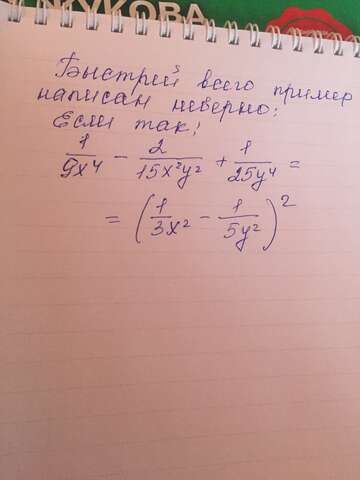 ЖУКОВА
Быстрий всего пример
написан неверно;
Если так;
1/9x⁴ - 2/15x²y² + 1/25y⁴ =
= (1/3x² - 1/5y²)²